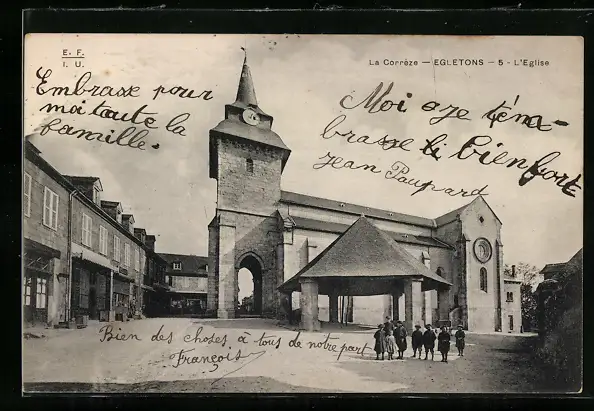 E. F.
I. U.
La Corrèze — EGLETONS — 5 - L'Eglise
Embrasse pour
moi toute la
famille.
Moi oze téna-
brasse si bienfort
jean Paupard
Bien des choses à tous de notre part
François